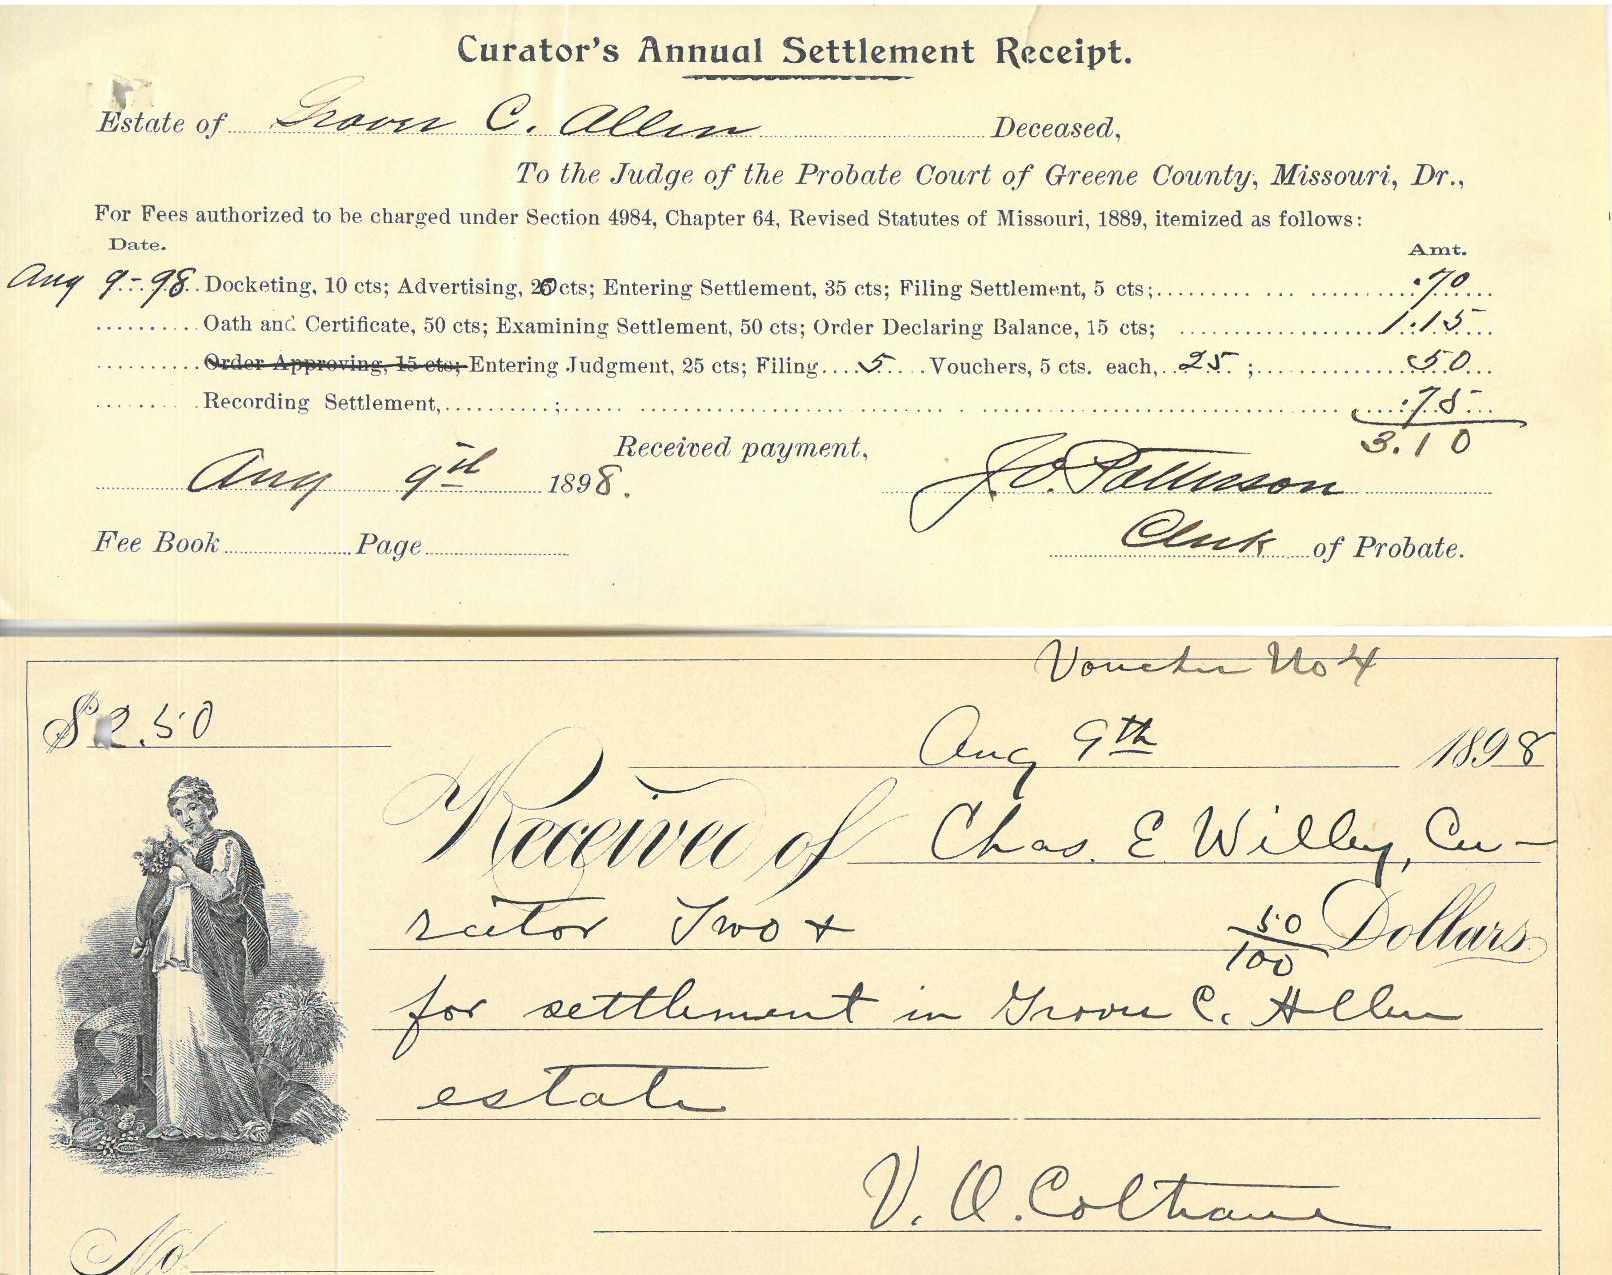 Curator's Annual Settlement Receipt.
Estate of Grover C. Allen Deceased,
To the Judge of the Probate Court of Greene County, Missouri, Dr.,
For Fees authorized to be charged under Section 4984, Chapter 64, Revised Statutes of Missouri, 1889, itemized as follows:
Date. Amt.
Aug 9-98 Docketing, 10 cts; Advertising, 20 cts; Entering Settlement, 35 cts; Filing Settlement, 5 cts; .70
Oath and Certificate, 50 cts; Examining Settlement, 50 cts; Order Declaring Balance, 15 cts; 1.15
Order Approving, 15 cts; Entering Judgment, 25 cts; Filing 5 Vouchers, 5 cts. each, 25 ; .50
Recording Settlement, ; .75
3.10
Received payment,
Aug 9th 1898. J. O. Patterson
Fee Book Page Clerk of Probate.
Voucher No 4
$2.50
Aug 9th 1898
Received of Chas. E. Willey, Cu-
rator Two + 50/100 Dollars
for settlement in Grover C. Allen
estate
V. O. Coltrane
No